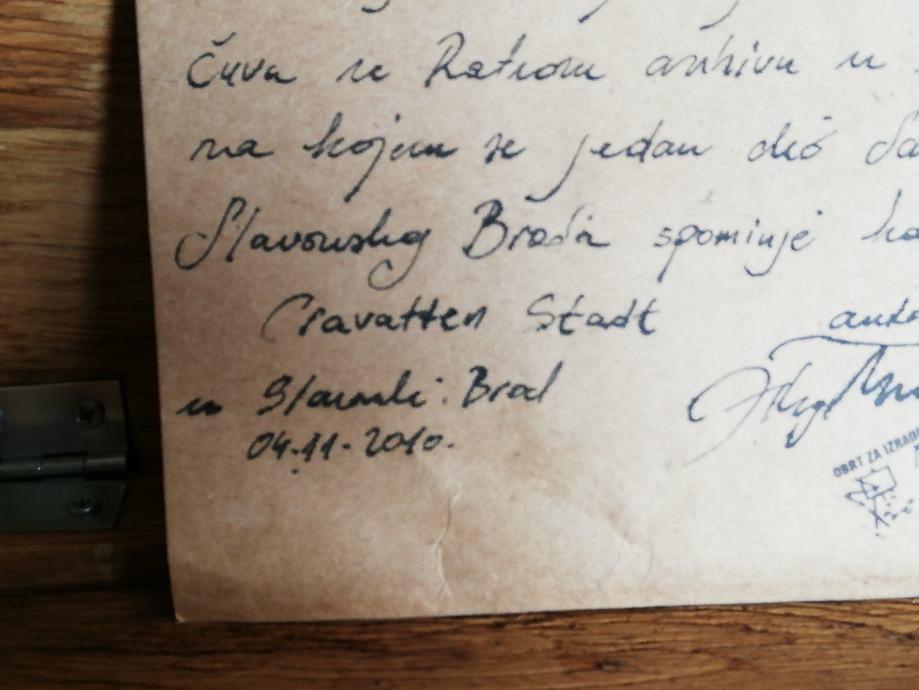 Čuva se Ratnom arhivu u
na kojem se jedan dio
Slavonskog Broda spominje
Cravatten Stadt
u Slavonski Brod
04.11.2010.
OBRT ZA IZRADU